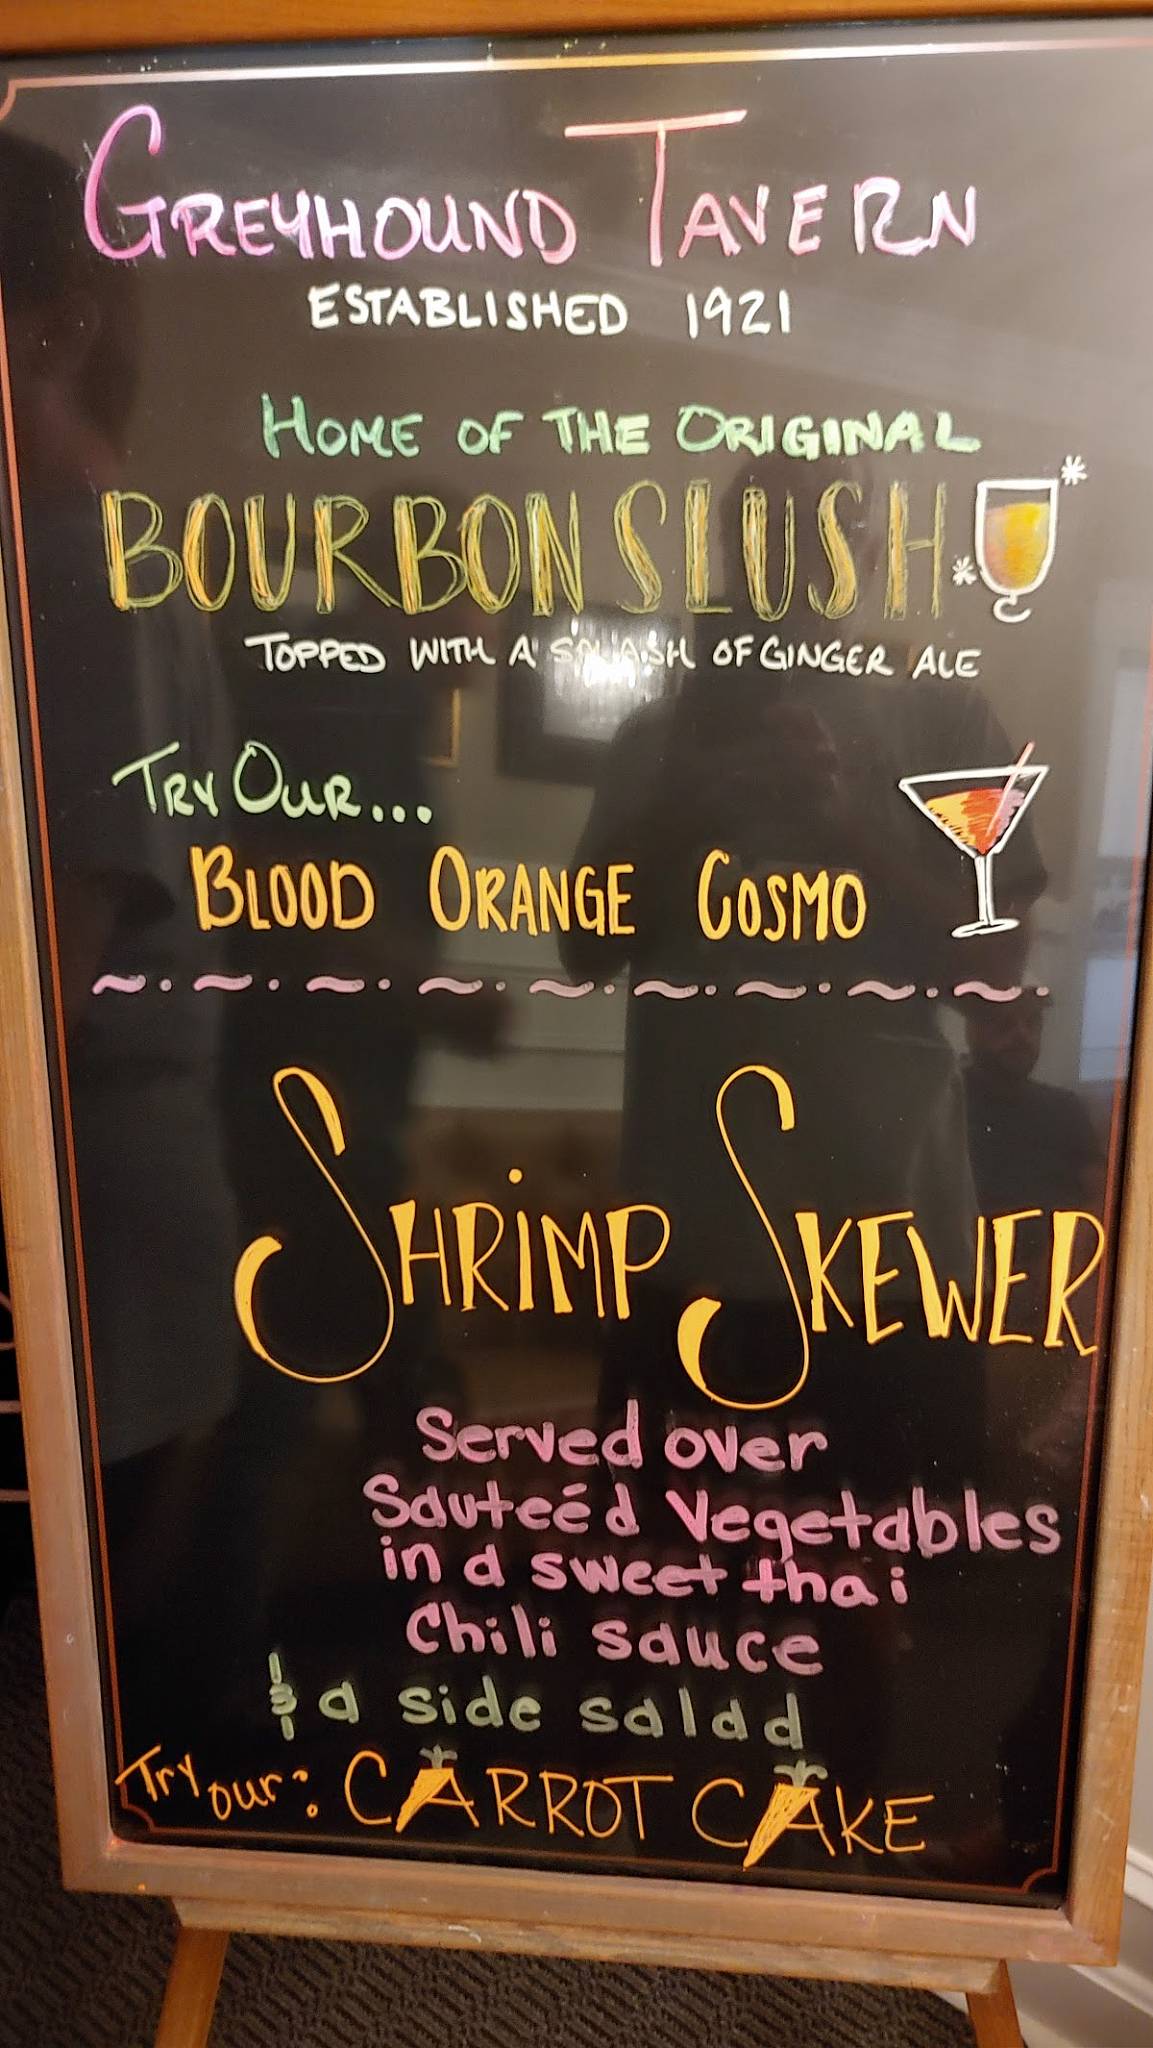 GREYHOUND TAVERN
ESTABLISHED 1921
HOME OF THE ORIGINAL
BOURBON SLUSH
TOPPED WITH A SPLASH OF GINGER ALE
TRY OUR...
BLOOD ORANGE COSMO
SHRiMP SKEWER
Served over
Sauteéd Vegetables
in a sweet thai
Chili sauce
& a side salad
Try our: CARROT CAKE